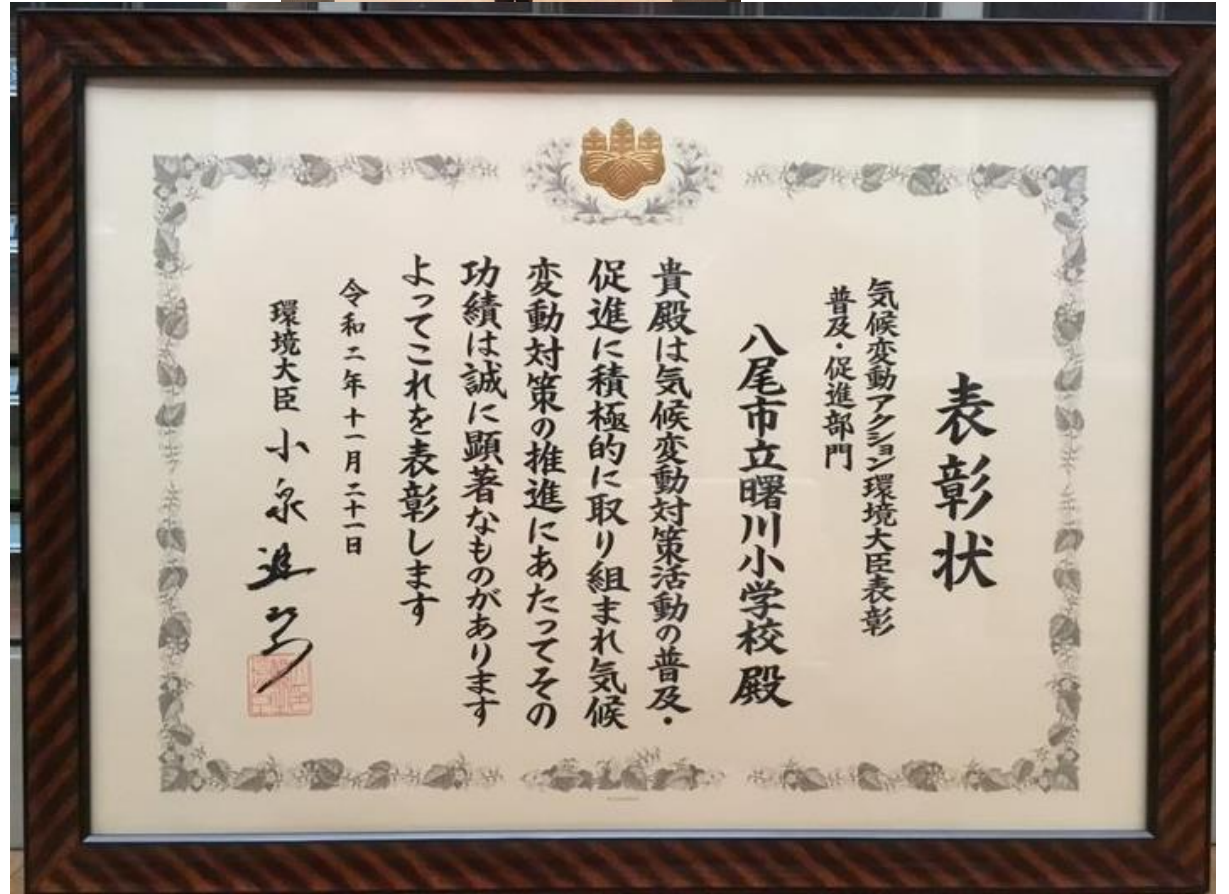 表彰状
気候変動アクション環境大臣表彰
普及・促進部門
八尾市立曙川小学校 殿
貴殿は気候変動対策活動の普及・
促進に積極的に取り組まれ気候
変動対策の推進にあたってその
功績は誠に顕著なものがあります
よってこれを表彰します
令和二年十一月二十一日
環境大臣 小泉進次郎